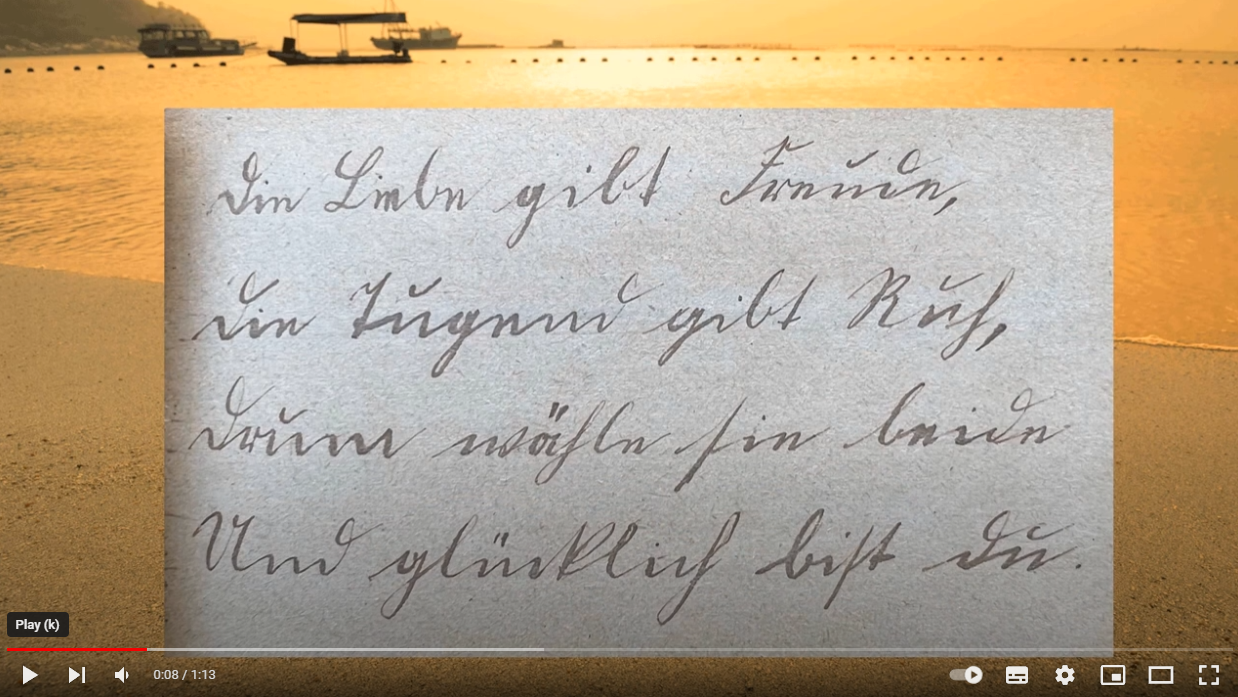 Die Liebe gibt Freude,
die Tugend gibt Ruh,
drum wähle sie beide
Und glücklich bist du.
Play (k)
0:08 / 1:13